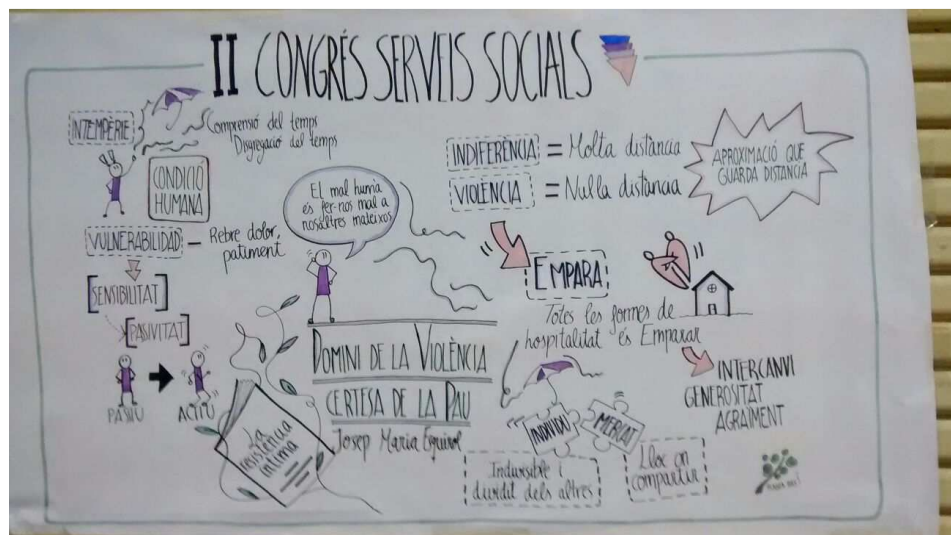 II CONGRÉS SERVEIS SOCIALS
INTEMPÈRIE
Comprensió del temps
Disgregació del temps
CONDICIÓ
HUMANA
VULNERABILIDAD – Rebre dolor,
patiment
SENSIBILITAT
PASIVITAT
PASIU
ACTIU
El mal humà
és fer-nos mal a
nosaltres mateixos
DOMINI DE LA VIOLÈNCIA
CERTESA DE LA PAU
Josep Maria Esquirol
La
resistència
íntima
INDIFERÈNCIA = Molta distància
VIOLÈNCIA = Nul·la distància
APROXIMACIÓ QUE
GUARDA DISTÀNCIA
EMPARA
Totes les formes de
hospitalitat és Emparar
INTERCANVI
GENEROSITAT
AGRAÏMENT
INDIVIDU
MERCAT
Indivisible i
dividit dels altres
Lloc on
compartir